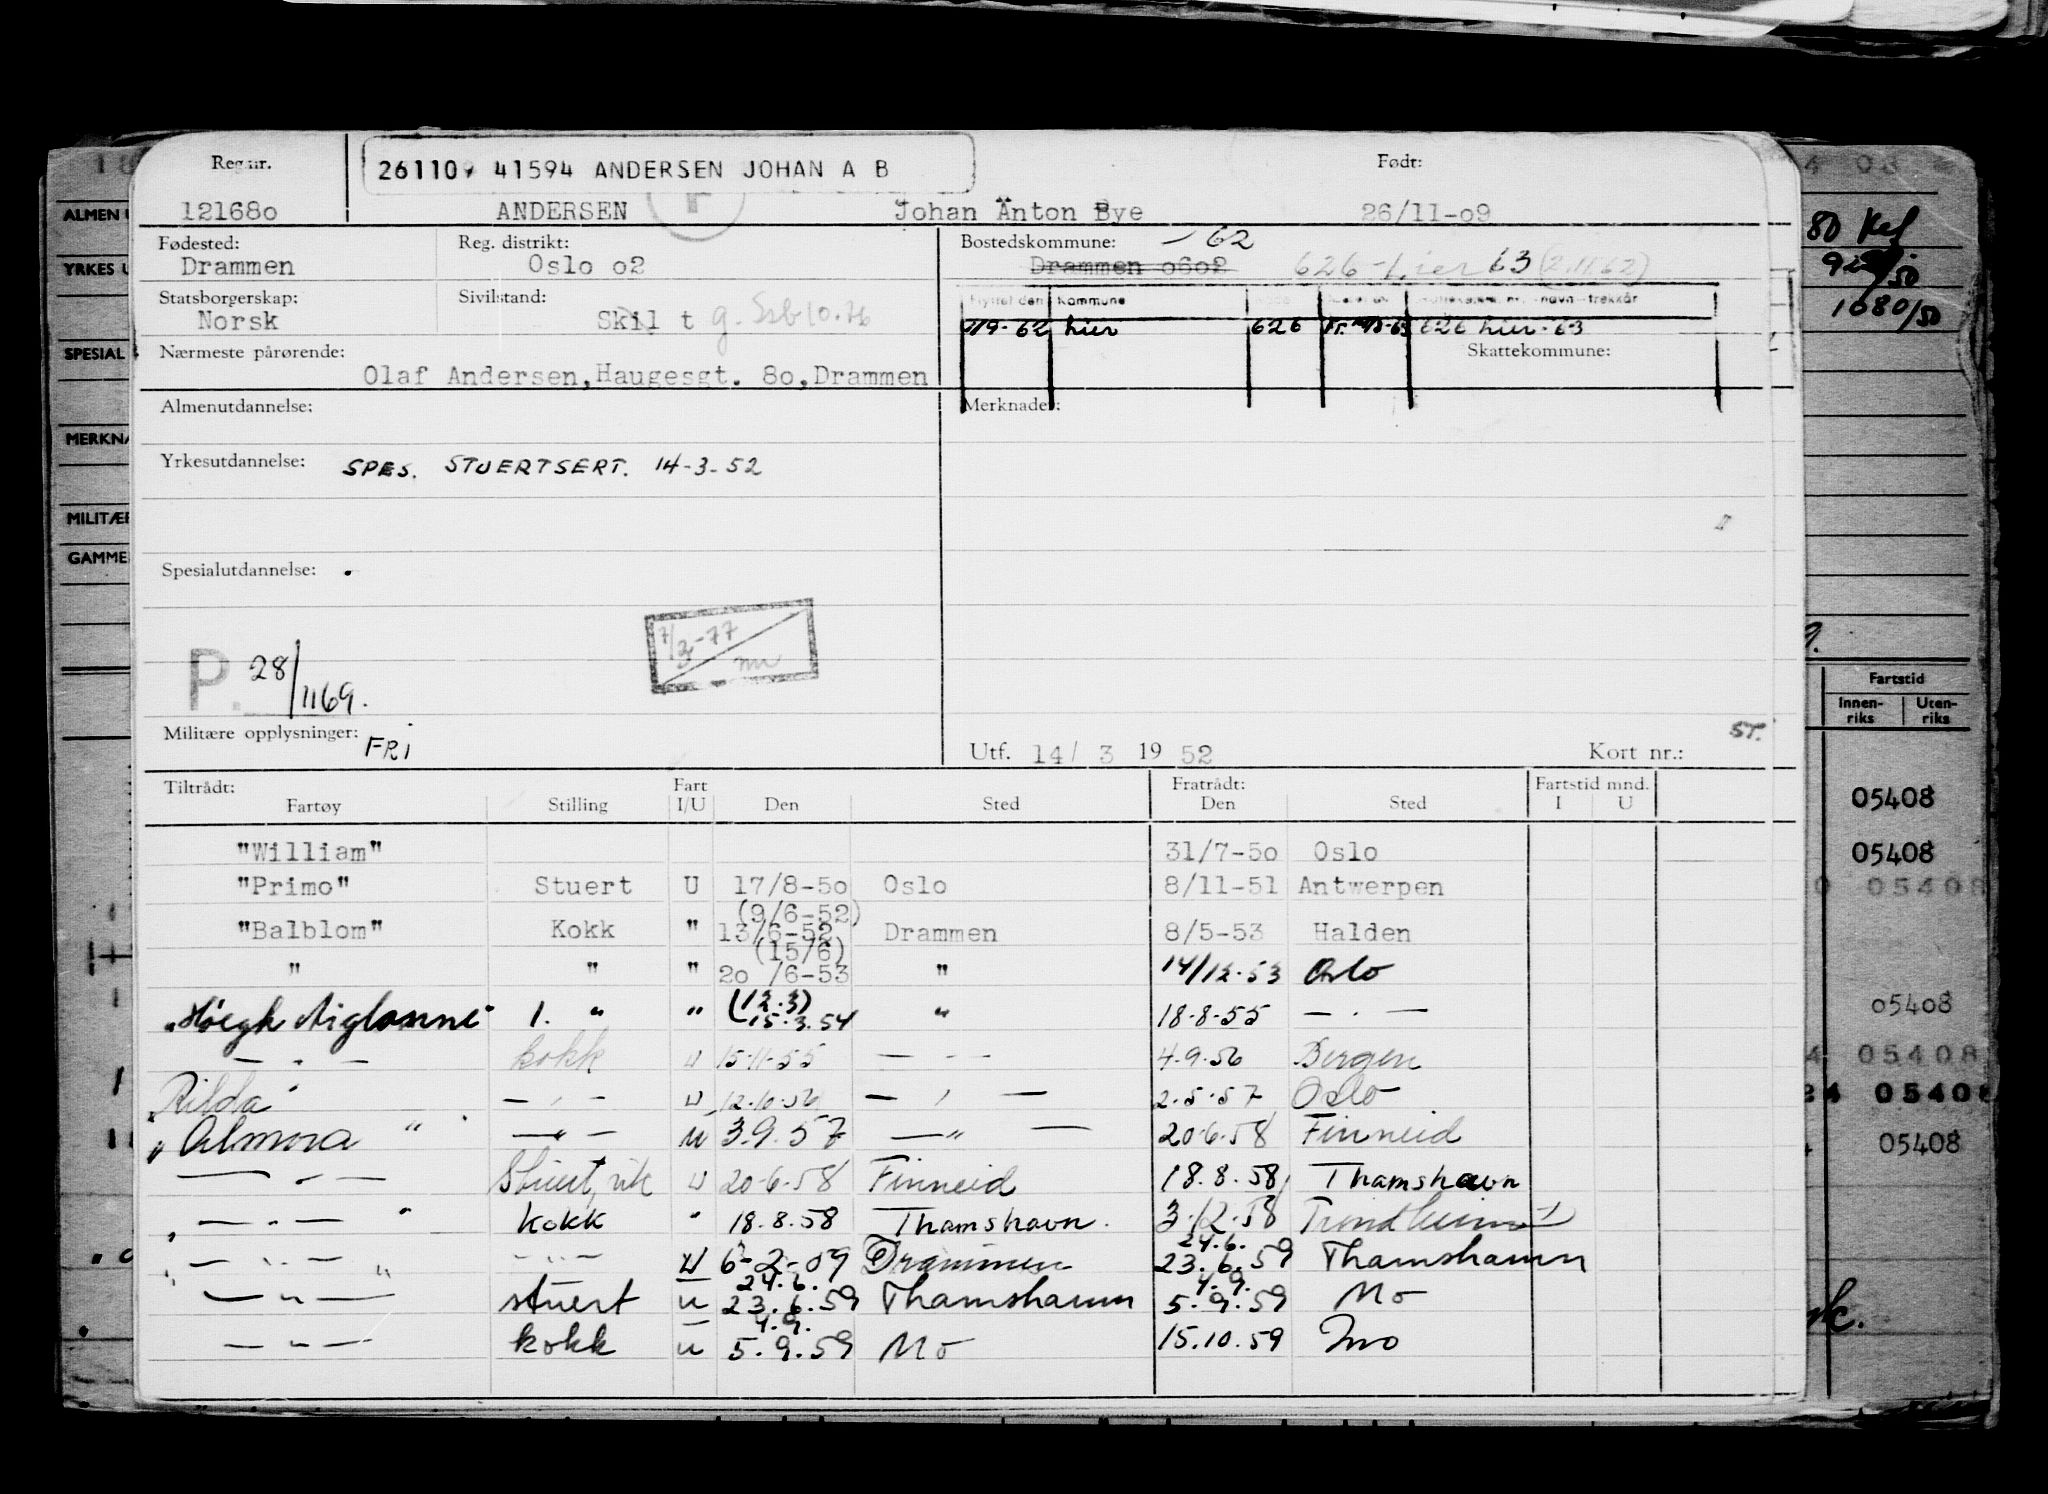 Reg.nr. 261109 41594 ANDERSEN JOHAN A B Født:
121680 ANDERSEN Johan Anton Bye 26/11-09
Fødested: Reg. distrikt: Bostedskommune: 62
Drammen Oslo 02 Drammen 0602 626-Lier 63 (2.11.62)
Statsborgerskap: Sivilstand: Flyttet den Kommune
Norsk Skilt g. Ssb 10.76 1/9-62 Lier 626 626 Lier-63
Nærmeste pårørende: Skattekommune:
Olaf Andersen, Haugesgt. 80, Drammen
Almenutdannelse: Merknader:
Yrkesutdannelse: SPES. STUERTSERT. 14-3-52
Spesialutdannelse:
7/3-77
P. 28/1169.
Militære opplysninger: FRI
ST.
Utf. 14/ 3 19 52 Kort nr.:
Tiltrådt: Fart Fratrådt: Fartstid mnd.
Fartøy Stilling I/U Den Sted Den Sted I U
"William" 31/7-50 Oslo
"Primo" Stuert U 17/8-50 Oslo 8/11-51 Antwerpen
(9/6-52)
"Balblom" Kokk " 13/6-52 Drammen 8/5-53 Halden
(15/6)
" " " 20/6-53 " 14/12-53 Oslo
(12.3)
"Höegh Aiglonne" 1. " " 15.3.54 " 18-8-55 — . —
— " — kokk U 15-11-55 — " — 4-9-56 Bergen
"Rilda" — " — U 12-10-56 — " — 2-5-57 Oslo
"Almora" — " — U 3.9.57 — " — 20-6-58 Finneid
— " — Stuert, vik U 20-6-58 Finneid 18.8.58 Thamshavn
— " — kokk " 18.8.58 Thamshavn. 3-12-58 Trondheim
24.6.
— " — — " — U 6-2-59 Drammen 23.6.59 Thamshamn
24.6. 4.9.
— " — stuert U 23.6.59 Thamshamn 5.9.59 Mo
4.9.
— " — kokk U 5.9.59 Mo 15.10.59 Mo
ALMEN
YRKES
SPESIAL
MERKNA
MILITÆR
GAMME
1080/50
Fartstid
Innen-riks Uten-riks
05408
05408
05408
05408
05408
05408
05408